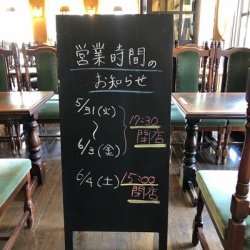 営業時間の
お知らせ
5/31(火)
〜
6/3(金)
17:30
閉店
6/4(土)
15:00
閉店